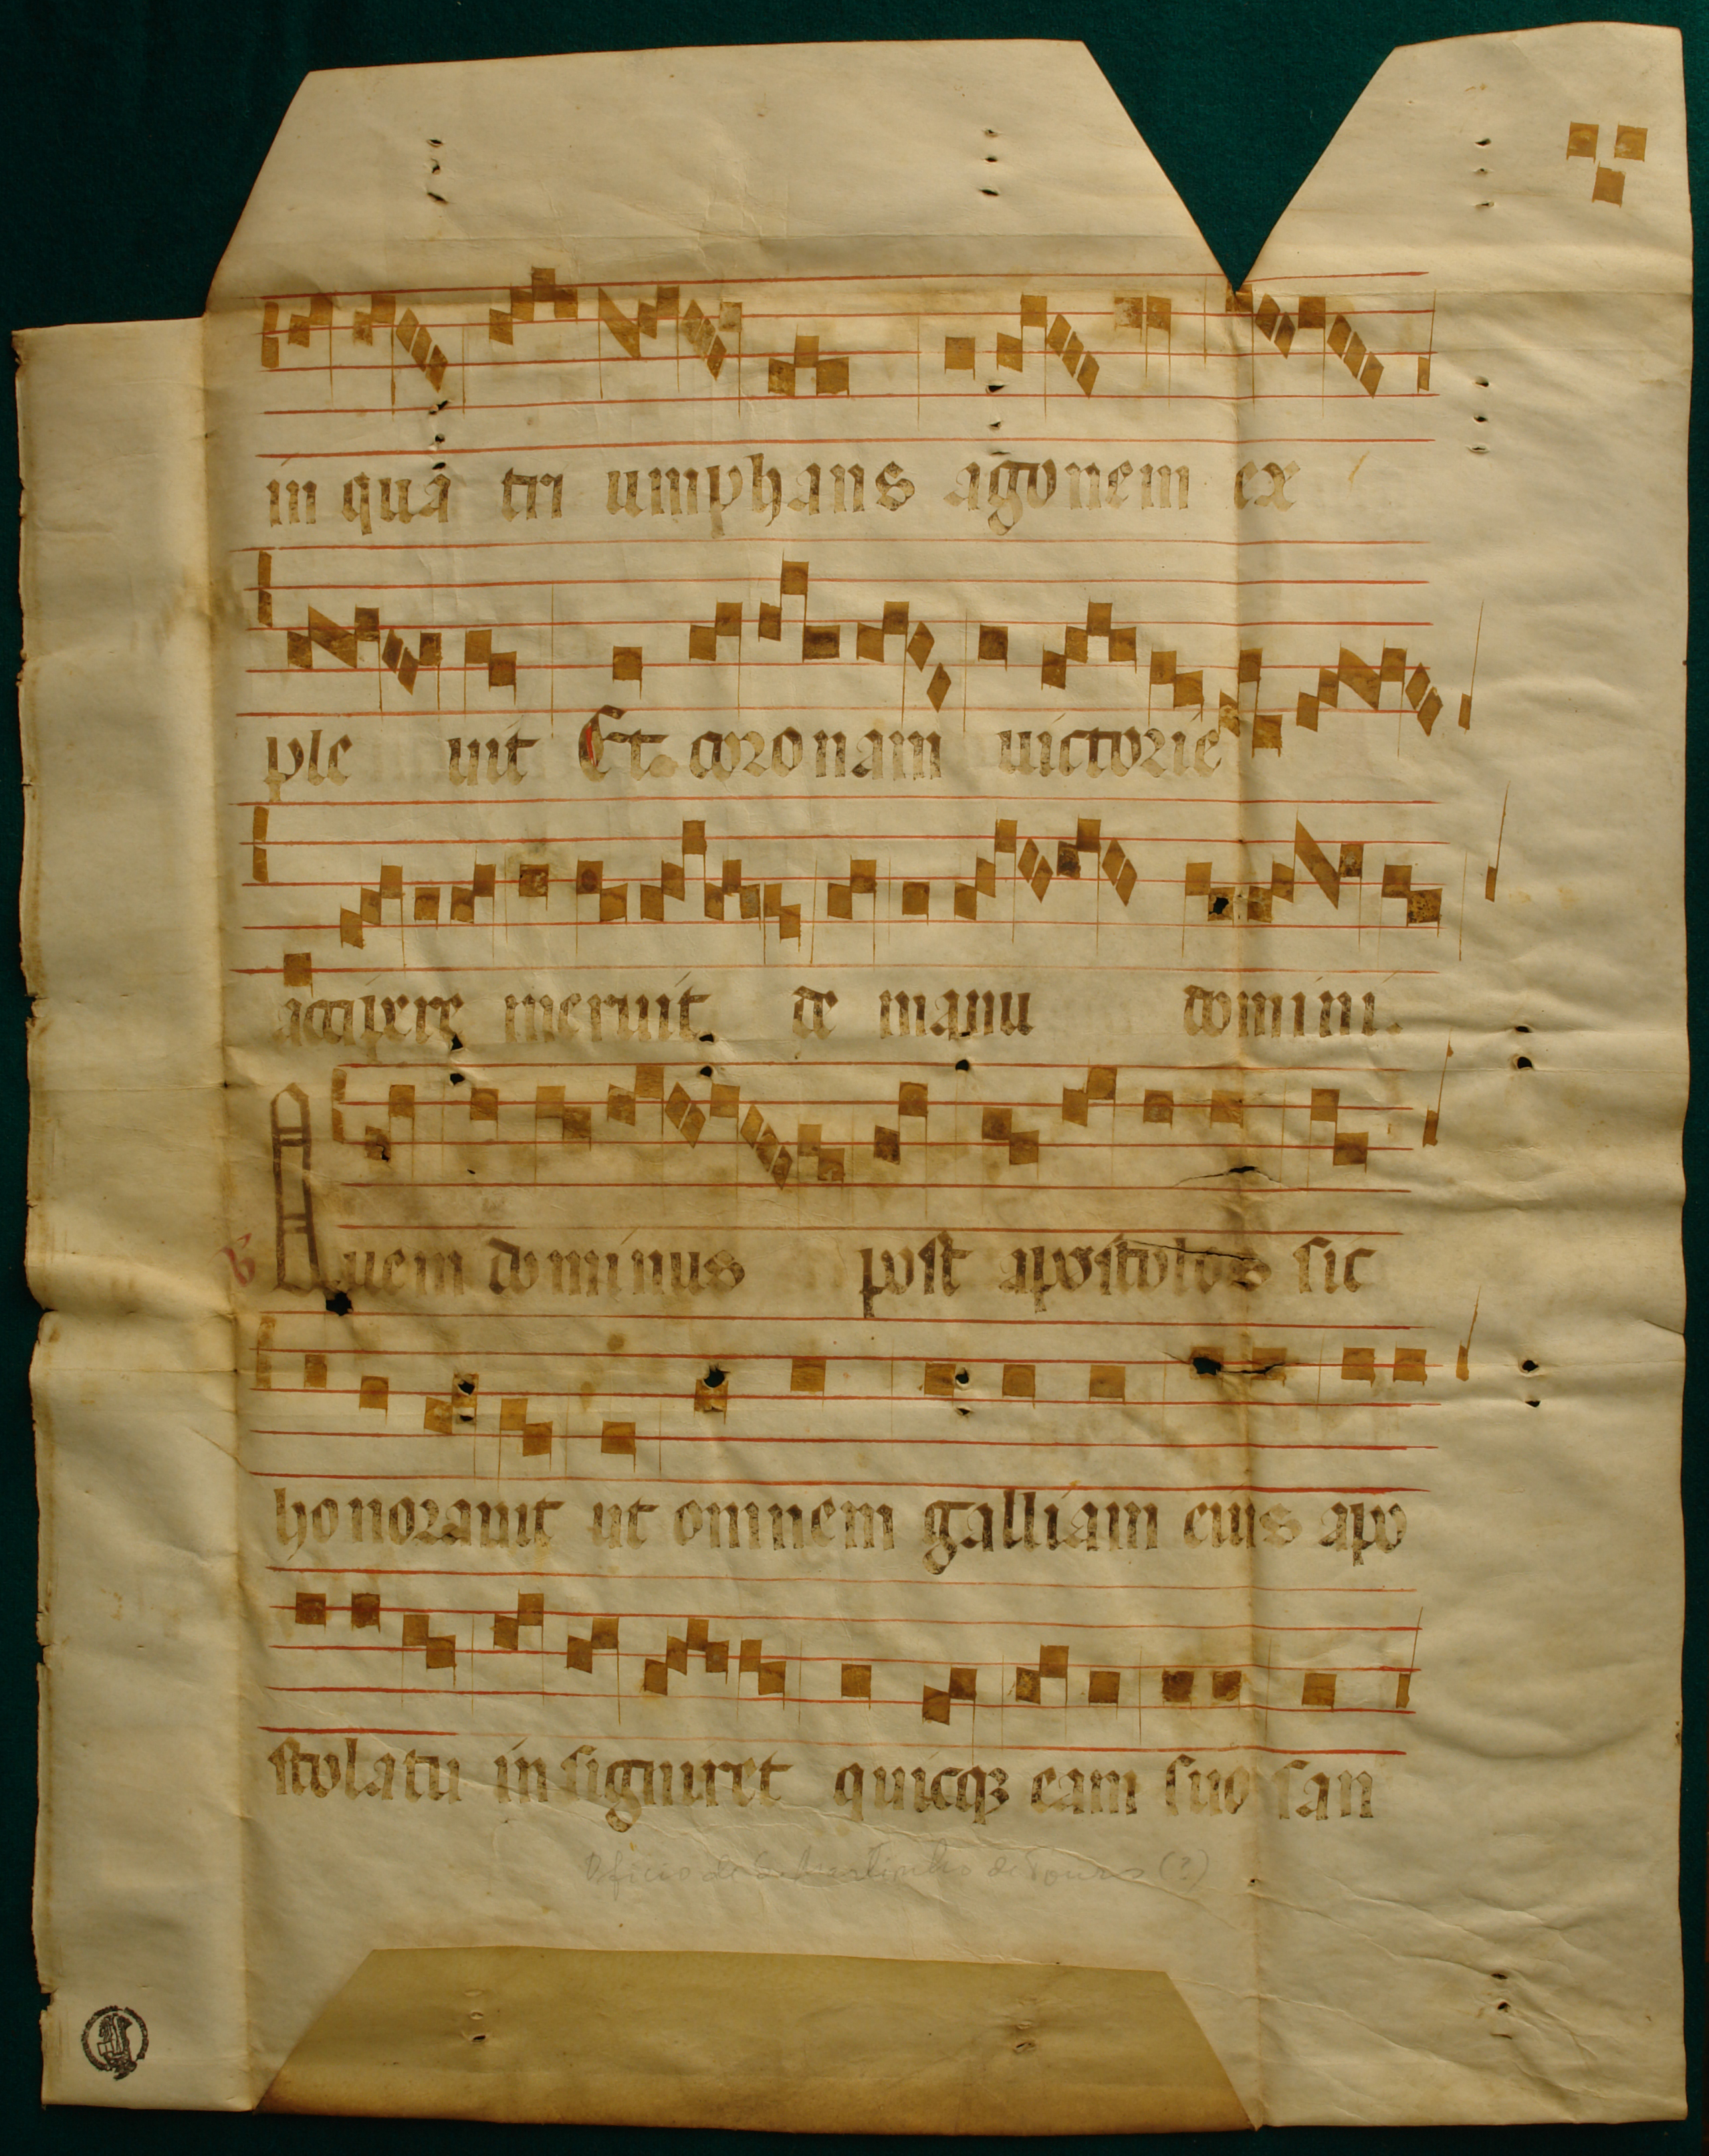 in quã tri umphans agonem ex
ple uit Et coronam uictorie
accipere meruit. de manu domini.
Quem dominus post apostolos sic
honorauit ut omnem galliam eius apo
stolatu insigniret quicqȝ eam suo san
Oficio de S. Martinho de Tours (?)